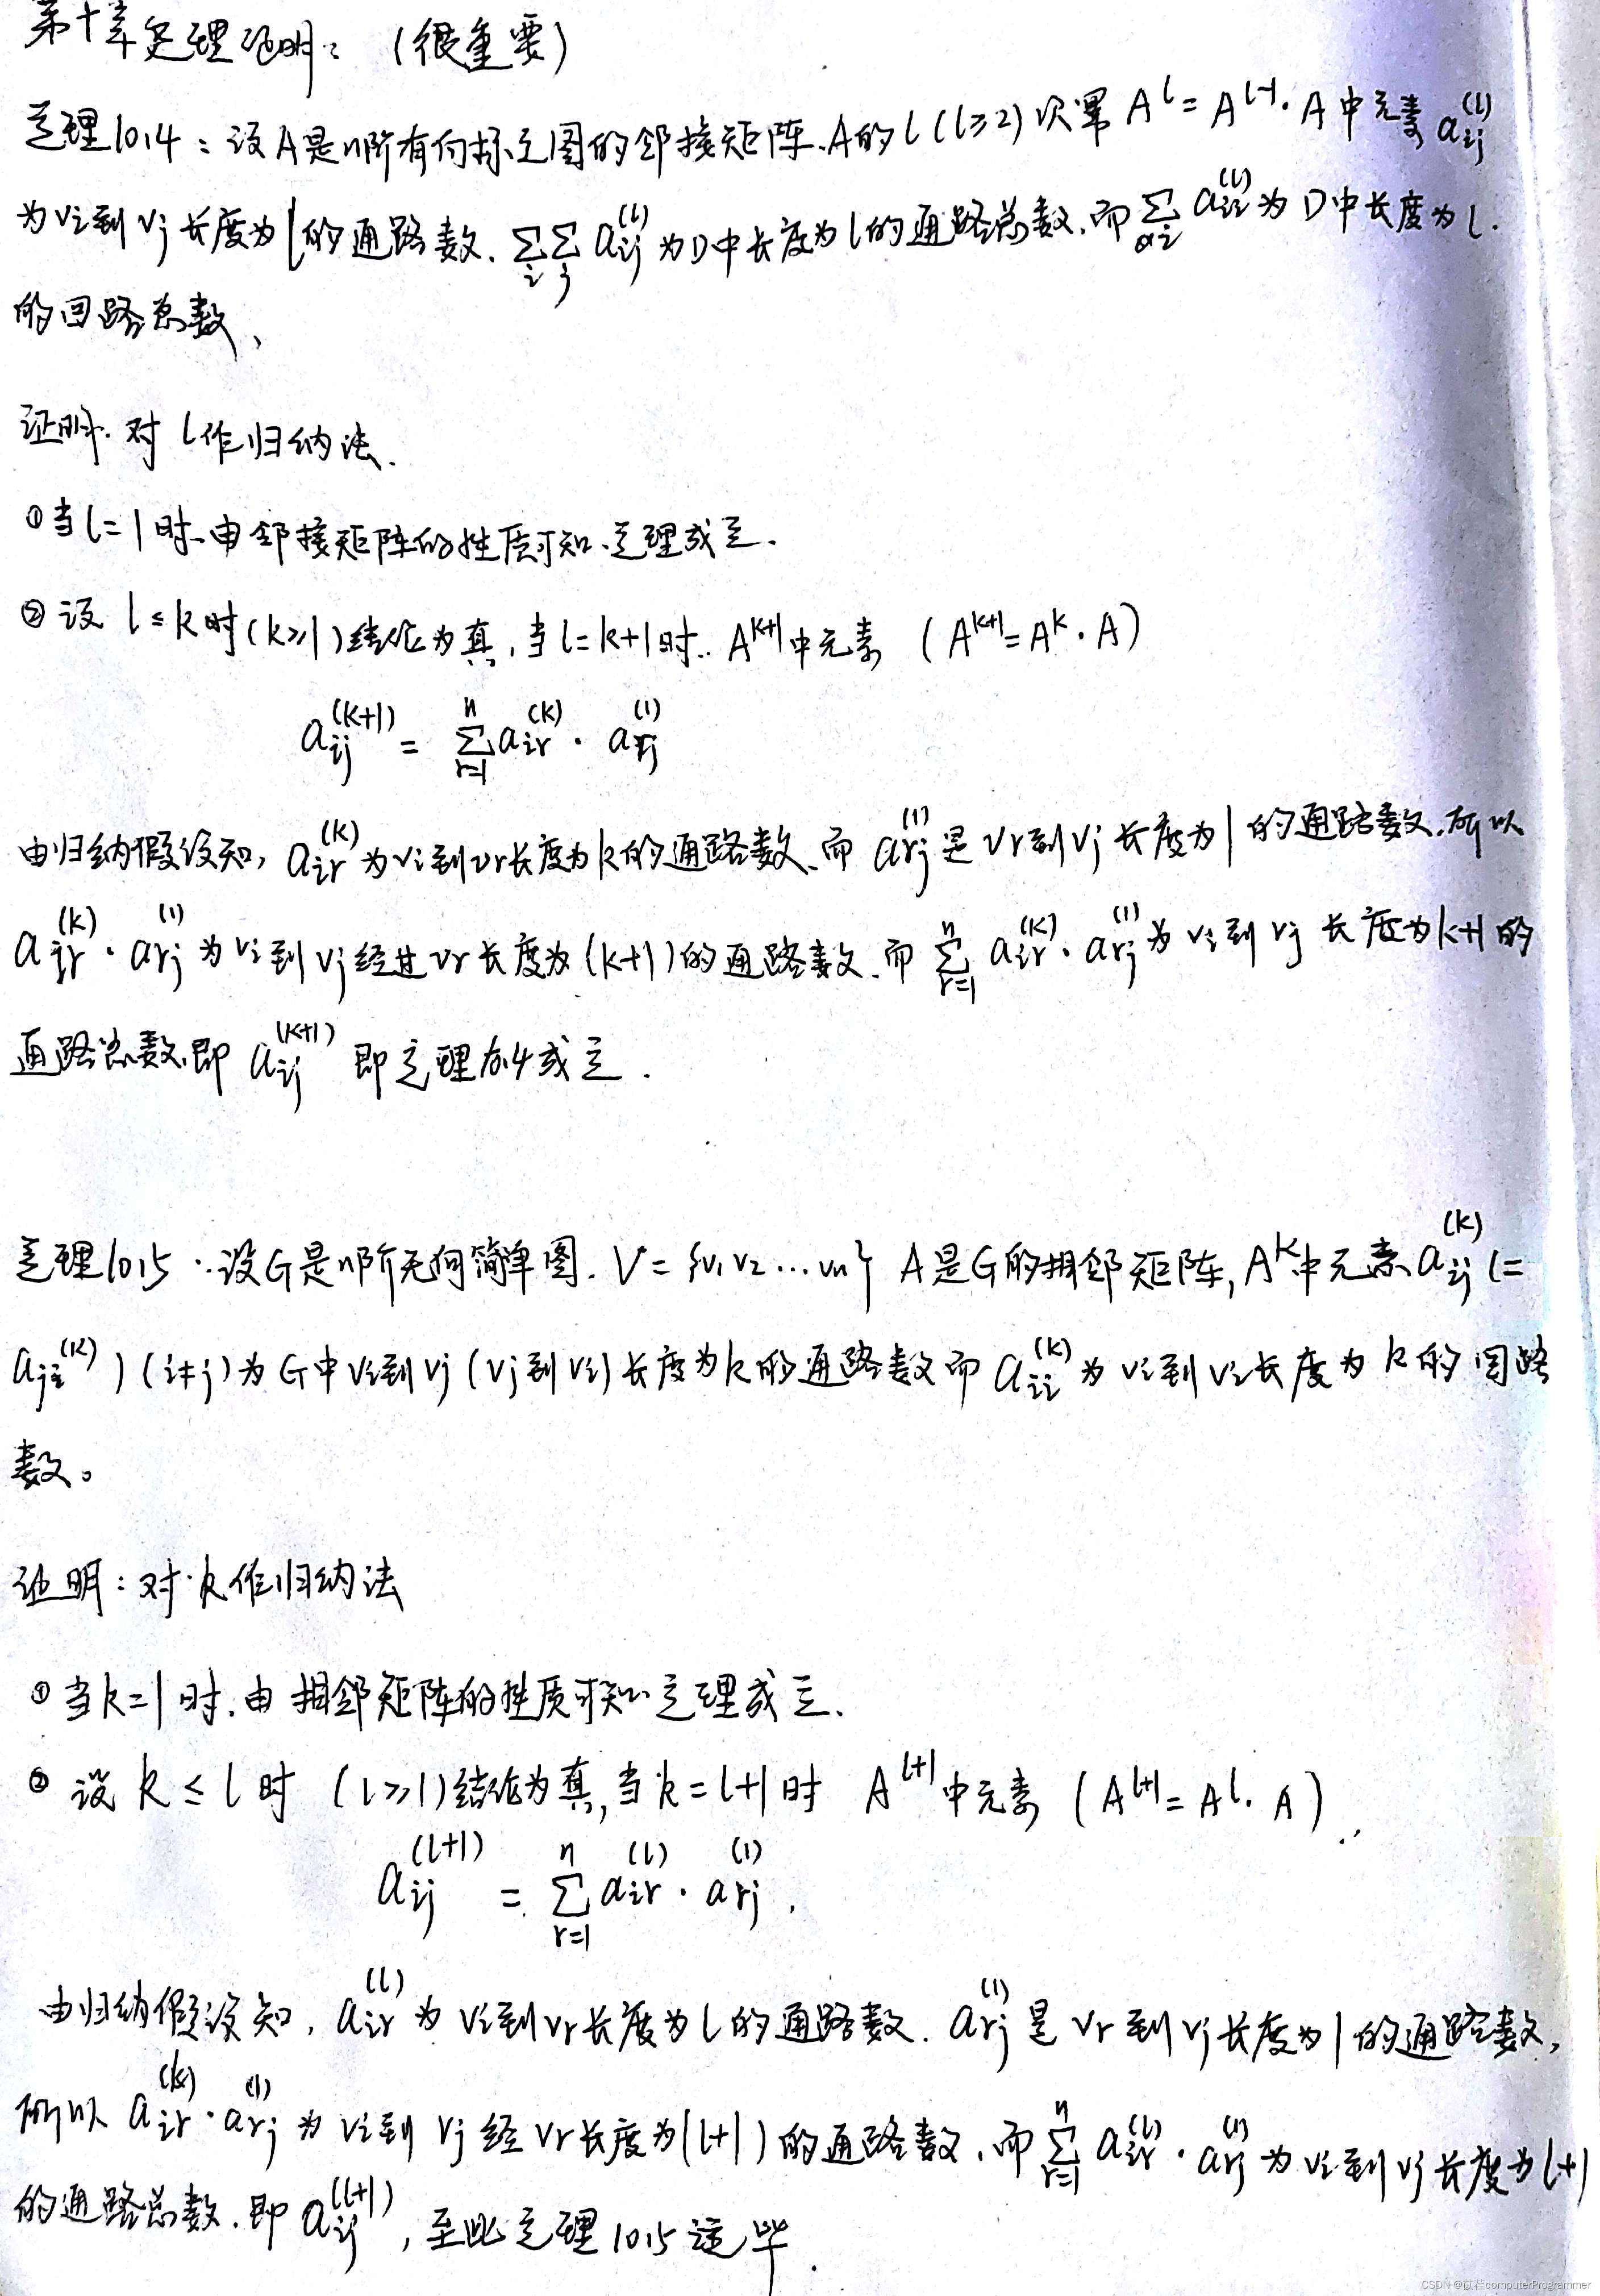 第十章定理证明：（很重要）
定理10.4：设A是n阶有向标定图的邻接矩阵、A的l(l≥2)次幂 A^l = A^(l-1)·A 中元素 a_ij^(l)
为vi到vj长度为l的通路数. ∑_i∑_j a_ij^(l) 为D中长度为l的通路总数,而 ∑_i a_ii^(l) 为D中长度为l.
的回路总数、
证明. 对l作归纳法.
①当l=1时.由邻接矩阵的性质可知.定理成立.
②设 l≤k时(k≥1)结论为真,当l=k+1时. A^(k+1)中元素 (A^(k+1)=A^k·A)
a_ij^(k+1) = ∑_{r=1}^n a_ir^(k) · a_rj^(1)
由归纳假设知, a_ir^(k) 为vi到vr长度为k的通路数、而 a_rj^(1) 是vr到vj长度为1的通路数.所以
a_ir^(k) · a_rj^(1) 为vi到vj经过vr长度为(k+1)的通路数.而 ∑_{r=1}^n a_ir^(k) · a_rj^(1) 为vi到vj长度为k+1的
通路总数.即 a_ij^(k+1) 即定理10.4成立.
定理10.5：设G是n阶无向简单图. V={v1 v2 ... vn} A是G的相邻矩阵, A^k中元素 a_ij^(k) (=
a_ji^(k)) (i≠j)为G中vi到vj(vj到vi)长度为k的通路数而 a_ii^(k) 为vi到vi长度为k的回路
数。
证明：对k作归纳法
①当k=1时.由相邻矩阵的性质可知定理成立.
②设 k≤l时 (l≥1)结论为真,当k=l+1时 A^(l+1)中元素 (A^(l+1)=A^l·A).
a_ij^(l+1) = ∑_{r=1}^n a_ir^(l) · a_rj^(1).
由归纳假设知, a_ir^(l) 为vi到vr长度为l的通路数. a_rj^(1) 是vr到vj长度为1的通路数,
所以 a_ir^(k) · a_rj^(1) 为vi到vj经vr长度为(l+1)的通路数.而 ∑_{r=1}^n a_ir^(l) · a_rj^(1) 为vi到vj长度为l+1
的通路总数.即 a_ij^(l+1), 至此定理10.5证毕.
CSDN @苡荏computerProgrammer